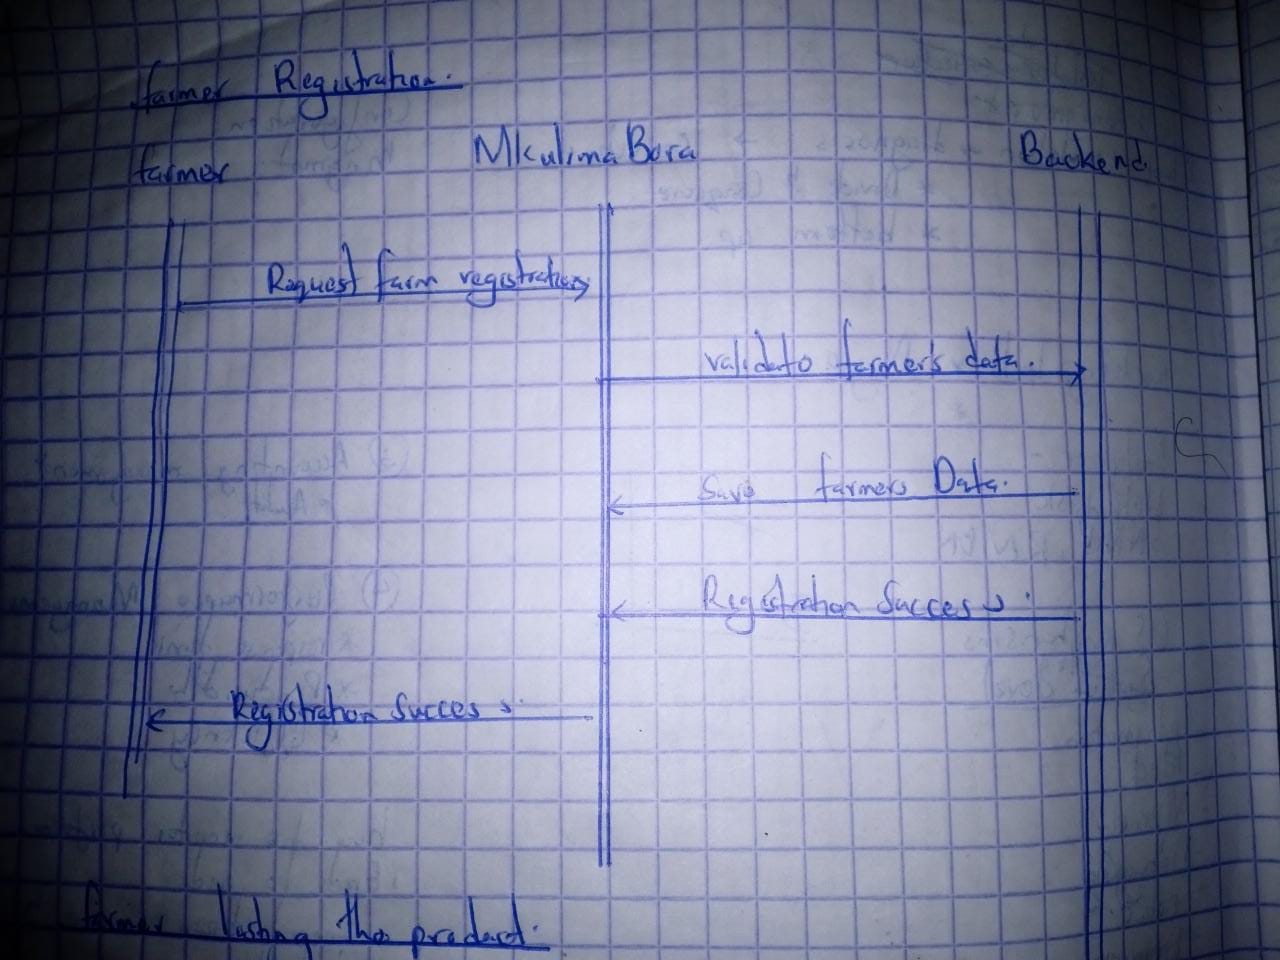 farmer Registration.
farmer MkulimaBora Backend.
Request farm registration
validate farmer's data.
Save farmers Data.
Registration Success.
Registration Success.
farmer listing the product.